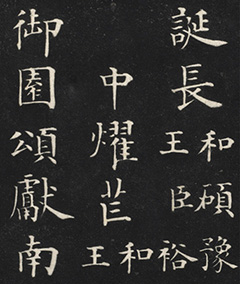 誕長
和碩豫
王臣裕
中耀芒
和
王
御園頌獻南